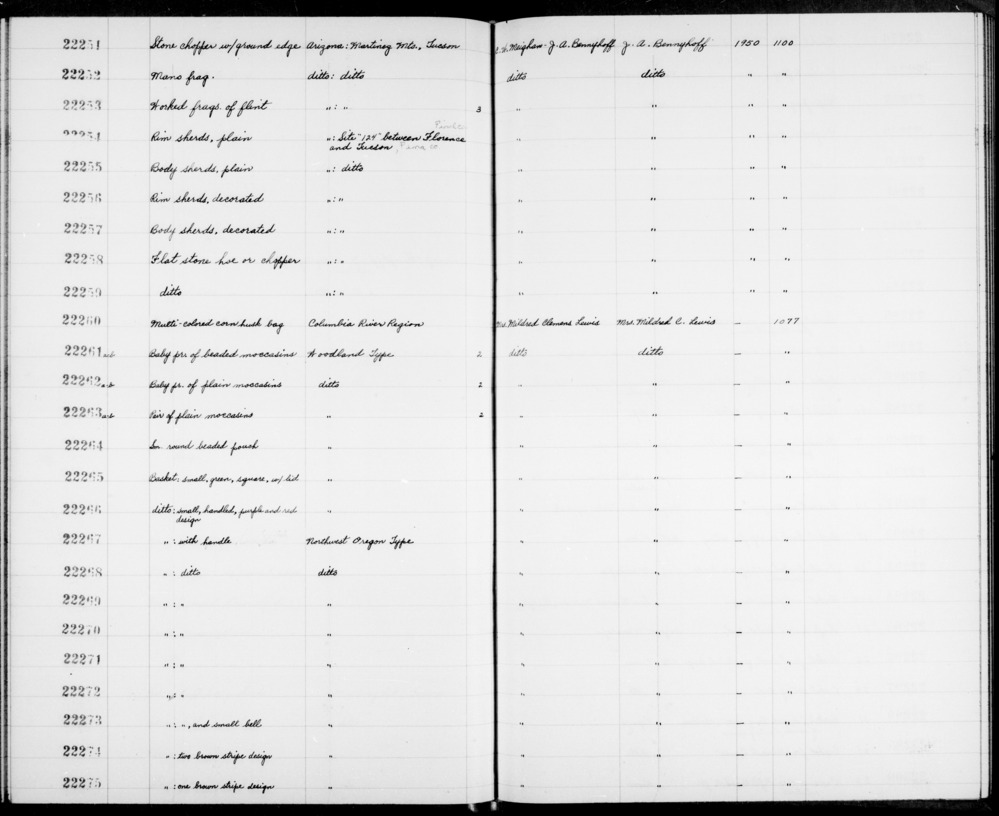 22251 Stone chopper w/ground edge Arizona: Martinez Mts., Tucson C. W. Meighan - J. A. Bennyhoff J. A. Bennyhoff 1950 1100
22252 Mano frag. ditto: ditto ditto ditto " "
22253 Worked frags. of flint ": " 3 " " " "
22254 Rim sherds, plain ": Site "124" between Florence Pima Co. " " " "
and Tucson, Pima Co.
22255 Body sherds, plain ": ditto " " " "
22256 Rim sherds, decorated ": " " " " "
22257 Body sherds, decorated ": " " " " "
22258 Flat stone hoe or chopper ": " " " " "
22259 ditto ": " " " " "
22260 Multi-colored corn husk bag Columbia River Region Mrs. Mildred Clemens Lewis Mrs. Mildred C. Lewis — 1077
22261 a&b Baby pr. of beaded moccasins Woodland Type 2 ditto ditto — "
22262 a&b Baby pr. of plain moccasins ditto 2 " " — "
22263 a&b Pair of plain moccasins " 2 " " — "
22264 Sm. round beaded pouch " " " — "
22265 Basket: small, green, square, w/ lid " " " — "
22266 ditto: small, handled, purple and red " " " — "
design
22267 " : with handle Northwest Oregon Type " " — "
22268 " : ditto ditto " " — "
22269 " : " " " " — "
22270 " : " " " " — "
22271 " : " " " " — "
22272 " : " " " " — "
22273 " : ", and small bell " " " — "
22274 " : two brown stripe design " " " — "
22275 " : one brown stripe design " " " — "